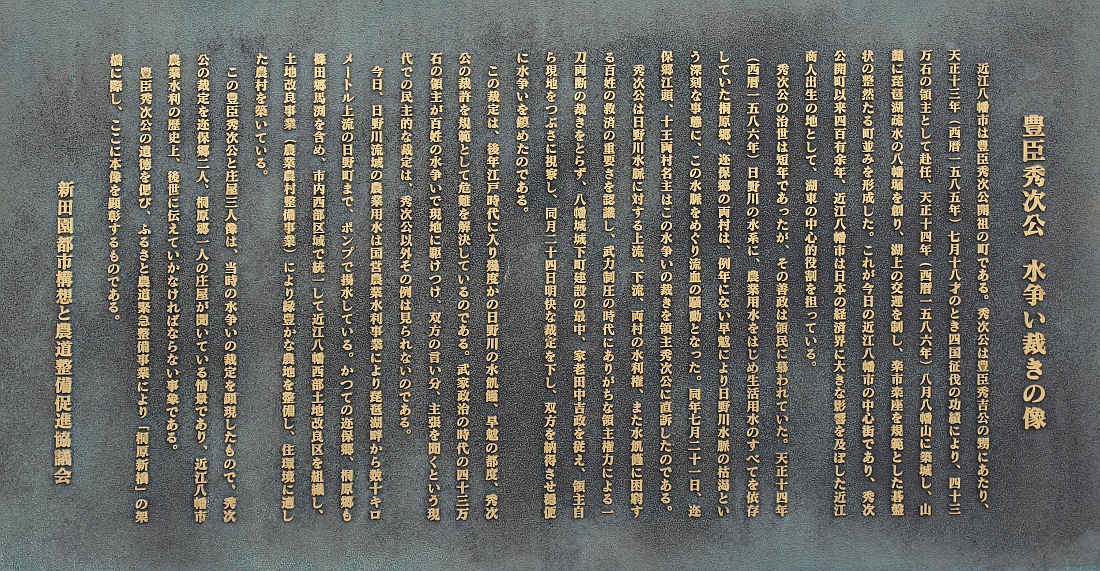 豊臣秀次公　水争い裁きの像
近江八幡市は豊臣秀次公開祖の町である。秀次公は豊臣秀吉公の甥にあたり、
天正十三年（西暦一五八五年）七月十八才のとき四国征伐の功績により、四十三
万石の領主として赴任、天正十四年（西暦一五八六年）八月八幡山に築城し、山
麓に琵琶湖疏水の八幡堀を創り、湖上の交通を制し、楽市楽座を規範とした碁盤
状の整然たる町並みを形成した。これが今日の近江八幡市の中心街であり、秀次
公開町以来四百有余年、近江八幡市は日本の経済界に大きな影響を及ぼした近江
商人出生の地として、湖東の中心的役割を担っている。
秀次公の治世は短年であったが、その善政は領民に慕われていた。天正十四年
（西暦一五八六年）日野川の水系に、農業用水をはじめ生活用水のすべてを依存
していた桐原郷、迩保郷の両村は、例年にない早魃により日野川水脈の枯渇とい
う深刻な事態に、この水脈をめぐり流血の騒動となった。同年七月二十一日、迩
保郷江頭、十王両村名主はこの水争いの裁きを領主秀次公に直訴したのである。
秀次公は日野川水脈に対する上流、下流、両村の水利権、また水飢饉に困窮す
る百姓の救済の重要さを認識し、武力制圧の時代にありがちな領主権力による一
刀両断の裁きをとらず、八幡城城下町建設の最中、家老田中吉政を従え、領主自
ら現地をつぶさに視察し、同月二十四日明快な裁定を下し、双方を納得させ穏便
に水争いを鎮めたのである。
この裁定は、後年江戸時代に入り幾度かの日野川の水飢饉、早魃の都度、秀次
公の裁許を規範として危難を解決しているのである。武家政治の時代の四十三万
石の領主が百姓の水争いで現地に駆けつけ、双方の言い分、主張を聞くという現
代での民主的な裁定は、秀次公以外その例は見られないのである。
今日、日野川流域の農業用水は国営農業水利事業により琵琶湖畔から数十キロ
メートル上流の日野町まで、ポンプで揚水している。かつての迩保郷、桐原郷も
篠田郷馬渕を含め、市内西部区域で統一して近江八幡西部土地改良区を組織し、
土地改良事業（農業農村整備事業）により緑豊かな農地を整備し、住環境に適し
た農村を築いている。
この豊臣秀次公と庄屋三人像は、当時の水争いの裁定を顕現したもので、秀次
公の裁定を迩保郷二人、桐原郷一人の庄屋が聞いている情景であり、近江八幡市
農業水利の歴史上、後世に伝えていかなければならない事象である。
豊臣秀次公の遺徳を偲び、ふるさと農道緊急整備事業により「桐原新橋」の架
橋に際し、ここに本像を顕彰するものである。
新田園都市構想と農道整備促進協議会